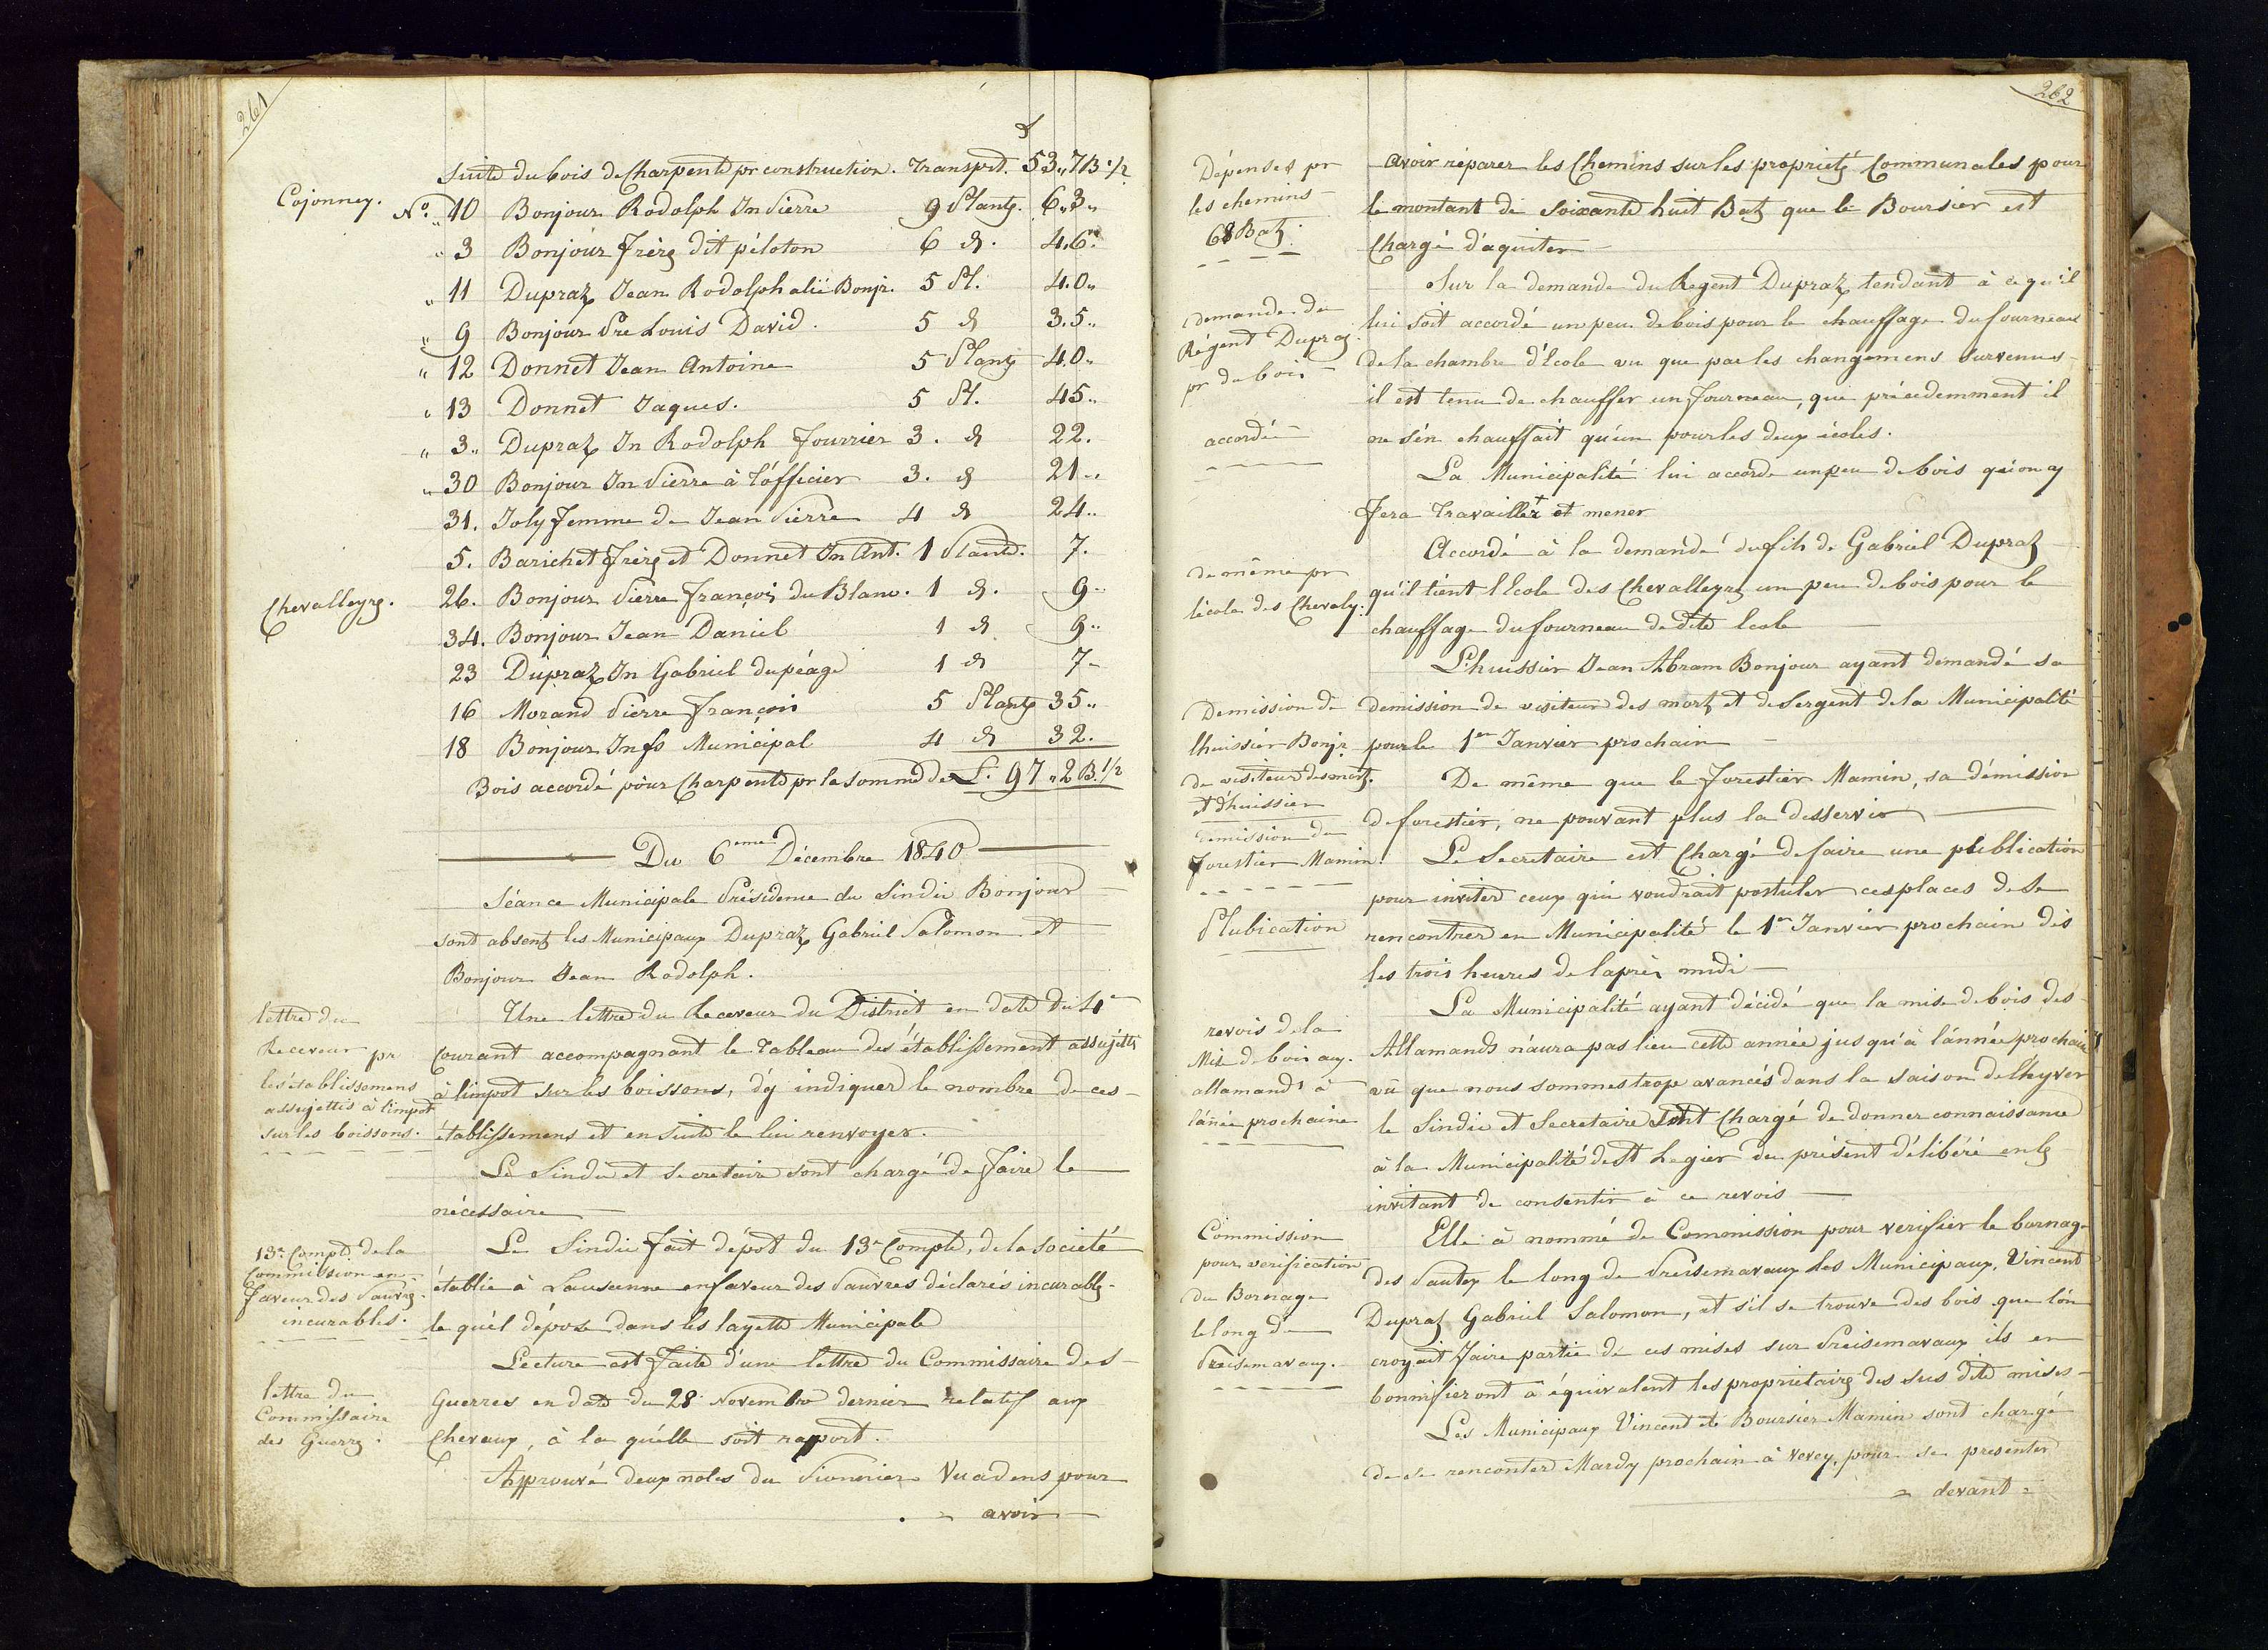 261
L
Suite du bois de Charpente pr construction. Transport. 53.,7B.1/2
Cojonney. No. 10 Bonjour Rodolph Jn Pierre 9 Plantz. 6.,3.,
" 3 Bonjour frères dit péloton 6 d. 4.6.,
" 11 Dupraz Jean Rodolph alié Bonjr. 5 Pl. 4.0.,
" 9 Bonjour Pre Louis David. 5 d 3.5.,
" 12 Donnet Jean Antoine 5 Plantz 4.0.,
" 13 Donnet Jaques. 5 Pl. 45.,
" 3.. Dupraz Jn Rodolph fourrier 3. d 22.
" 30 Bonjour Jn Pierre à l'officier 3. d 21..
31. Joly femme de Jean Pierre 4 d 24..
5. Barichet frères et Donnet Jn Ant. 1 Plante. 7.
Chevalleyrs. 26. Bonjour Pierre François du Blanc. 1 d. 9..
34. Bonjour Jean Daniel 1 d 9..
23 Dupraz Jn Gabriel du péage 1 d 7-
16 Morand Pierre François 5 Plantz 35..
18 Bonjour Jn fs Municipal 4 d 32.
Bois accordé pour Charpente pr la somme de L. 97.,2B.1/2
Du 6eme Décembre 1840
Séance Municipale Présidence du Sindic Bonjour
sont absentz les Municipaux Dupraz Gabriel Salomon et
Bonjour Jean Rodolph.
lettre du
Receveur pr
les établissemens
assujettis à l'impot
sur les boissons.
Une lettre du Receveur du District en date du 4e
Courant accompagnant le Tableau des établissement assujettis
à l'impot sur les boissons, d'y indiquer le nombre de ces
établissemens et en suite le lui renvoyer.
Le Sindic et Secretaire sont chargé de faire le
nécessaire
13e Compte de la
Commission en
faveur des Pauvres
incurables.
Le Sindic fait dépôt du 13e Compte, de la Societé
établie à Lausanne en faveur des Pauvres déclarés incurables
le qu'él dépose dans les layette Municipale
lettre du
Commissaire
des Guerres.
Lecture est faite d'une lettre du Commissaire des
Guerres en date du 28 Novembre dernier relatif aux
Chevaux, à la qu'élle soit rapport.
Approuvé deux notes du Pionnier Vuadens pour
avoir
262
Dépenses pr
les chemins
68 Batz.
avoir réparer les Chemins sur les propriétés Communales pour
le montant de Soixante huit Batz que le Boursier est
Chargé d'aquiter
demande du
Régent Dupraz
pr du bois
accordé
Sur la demande du Regent Dupraz tendant à ce qu'il
lui soit accordé un peu de bois pour le chauffage du fourneau
de la chambre d'École vu que par les changemens survenus
il est tenu de chauffer un fourneau, que précedemment il
ne s'én chauffait qu'un pour les deux écoles.
La Municipalité lui accorde un peu de bois qu'on y
fera travailler et mener
de même pr
l'école des Chevaly.
Accordé à la demande du fils de Gabriel Dupraz
qu'il tient l'École des Chevalleyrs un peu de bois pour le
chauffage du fourneau de dite École
Demission de
l'huissier Bonjr
de visiteur des mortz.
et d'huissier
L'huissier Jean Abram Bonjour ayant demandé sa
demission de visiteur des mortz et de Sergent de la Municipalité
pour le 1er Janvier prochain
demission du
forestier Mamin.
De même que le forestier Mamin, sa démission
de forestier, ne pouvant plus la desservir
Plubication
Le Secretaire est Chargé de faire une publication
pour inviter ceux qui voudrait postuler ces places de se
rencontrer en Municipalité le 1er Janvier prochain dès
les trois heures de l'après midi
revois de la
Mise de bois aux
allamands à
l'anée prochaine
La Municipalité ayant décidé que la mise de bois des
Allamands n'aura pas lieu cette année jusqu'à l'année prochaine
vû que nous sommes trope avancés dans la saison de l'hyver
le Sindic et Secretaire Sont Chargé de donner connaissance
à la Municipalité de St Legier du présent délibéré en les
invitant de consentir à ce revois
Commission
pour vérification
du Bornage
le long de
Preisemavaux.
Elle à nommé de Commission pour verifier le bornage
des Pautex le long de Preisemavaux les Municipaux, Vincent
Dupraz Gabriel Salomon, et s'il se trouve des bois que l'ón
croyait faire partie de ces mises sur Preisemavaux ils en
bonnifieront à équivalent les proprietaires des sus dite mises
Les Municipaux Vincent et Boursier Mamin sont chargé
de se rencontrer Mardy prochain à Vevey, pour se presenter
= devant =